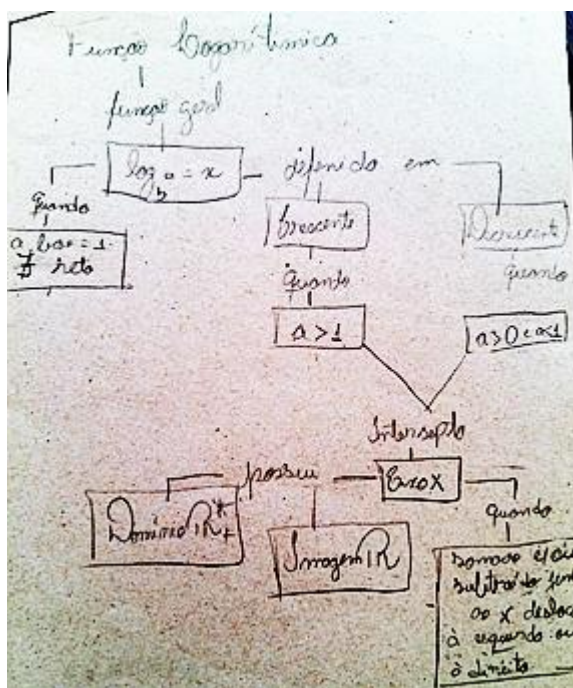 Função Logarítmica
função geral
log b a = x
definido em
Quando
a base = 1
∄ reta
Crescente
Decrescente
Quando
quando
a > 1
a>0 e a<1
Intersepta
Eixo X
possui
Domínio IR*+
Imagem IR
quando
somado e/ou
subtraído
ao x desloca
à esquerda ou
à direita